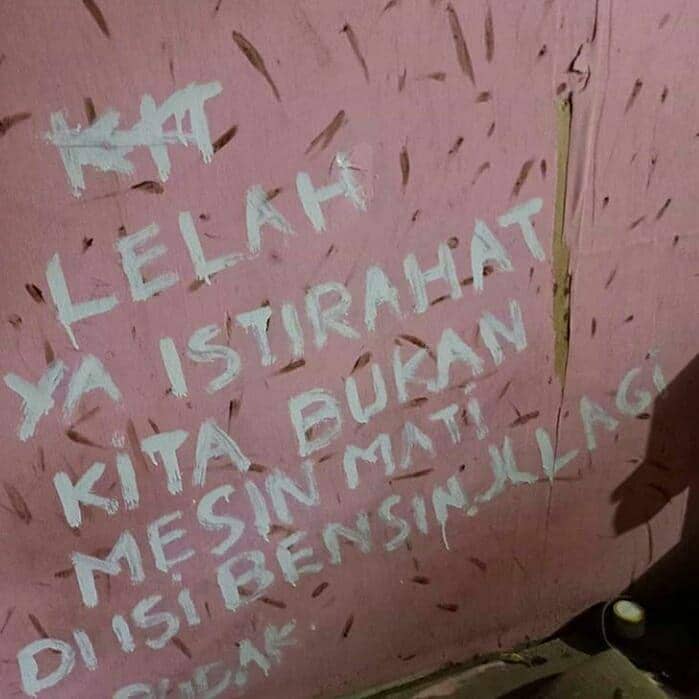 LELAH
YA ISTIRAHAT
KITA BUKAN
MESIN MATI
DI ISI BENSIN JLLAGI